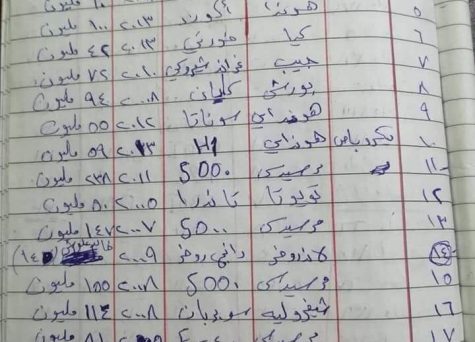 ٥ هوندا اكورد ٢٠١٣ ١٠٠ مليون
٦ كيا ٢٠١٣ ٤٢ مليون
٧ جيب كراند شروكي ٢٠١٠ ٧٢ مليون
٨ بورشي ٢٠٠٨ ٩٤ مليون
٩ هونداي سوناتا ٢٠١٢ ٥٥ مليون
١٠ مكروباص هونداي H1 ٢٠١٣ ٥٩ مليون
١١ مرسيدس 500 ٢٠١١ ٢٣٨ مليون
١٢ تويوتا تاندرا ٢٠٠٥ ٨٠ مليون
١٣ مرسيدس 500 ٢٠٠٧ ١٤٧ مليون
١٤ لاندروفر رانج روفر ٢٠٠٩
١٥ مرسيدس 500 ٢٠٠٨ ١٥٥ مليون
١٦ شفروليه سوبربان ٢٠٠٨ ١١٤ مليون
١٧ مرسيدس مليون